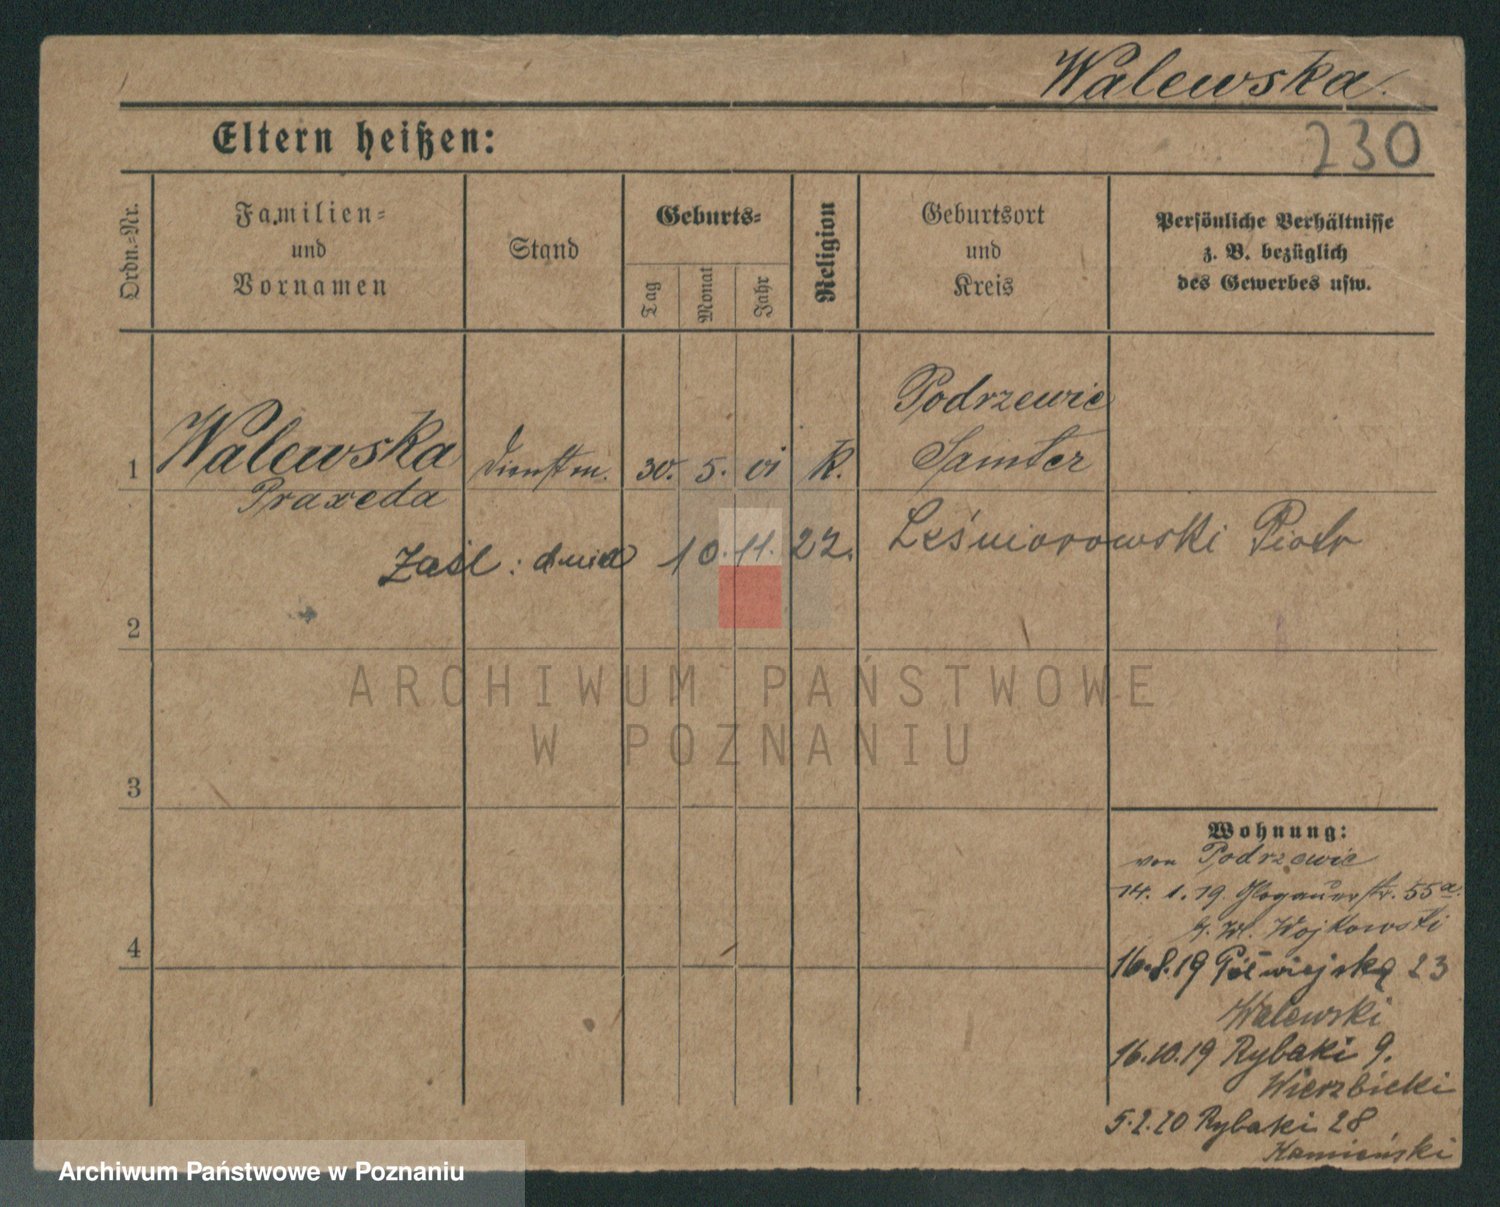 Walewska.
Eltern heißen:
230
Ordn.-Nr.
Familien-
und
Vornamen
Stand
Geburts-
Tag
Monat
Jahr
Religion
Geburtsort
und
Kreis
Persönliche Verhältnisse
z. B. bezüglich
des Gewerbes usw.
1
Walewska
Praxeda
Dienstm.
30. 5. 01
k.
Podrzewie
Samter
Zaśl: dnia 10.11.22. Leśniorowski Piotr
2
ARCHIWUM PAŃSTWOWE
W POZNANIU
3
4
Wohnung:
von Podrzewie
14. 1. 19. Glogauerstr. 55a.
b. Wl. Wojkowski
16.8.19 Półwiejską 23
Walewski
16.10.19 Rybaki 9.
Wierzbicki
5.2.20 Rybaki 28
Kamieński
Archiwum Państwowe w Poznaniu